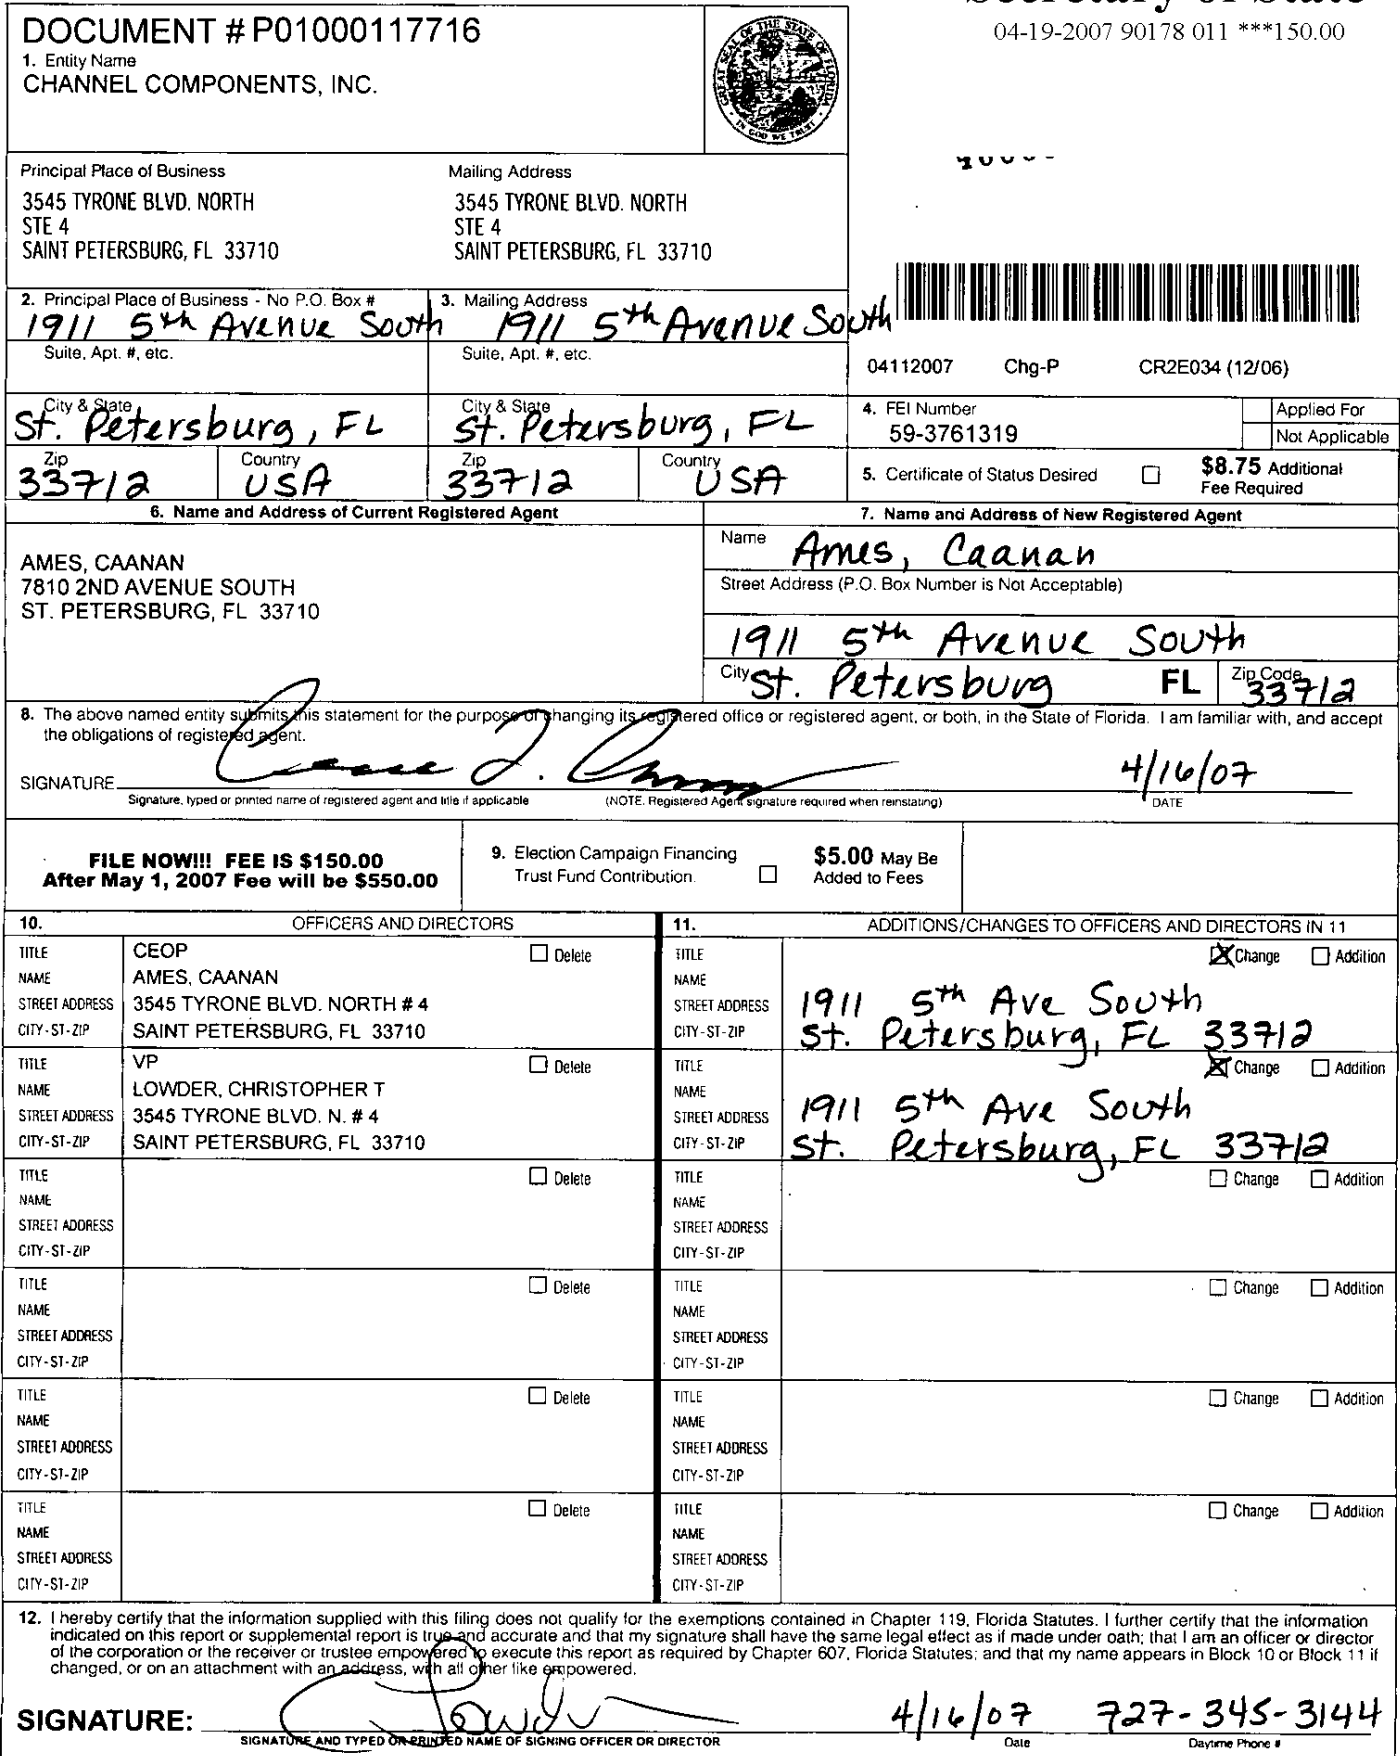 DOCUMENT # P01000117716
04-19-2007 90178 011 ***150.00
1. Entity Name
CHANNEL COMPONENTS, INC.
GREAT SEAL OF THE STATE OF FLORIDA
IN GOD WE TRUST
Principal Place of Business
3545 TYRONE BLVD. NORTH
STE 4
SAINT PETERSBURG, FL 33710
Mailing Address
3545 TYRONE BLVD. NORTH
STE 4
SAINT PETERSBURG, FL 33710
2. Principal Place of Business - No P.O. Box #
1911 5th Avenue South
Suite, Apt. #, etc.
City & State
St. Petersburg, FL
Zip
33712
Country
USA
3. Mailing Address
1911 5th Avenue South
Suite, Apt. #, etc.
City & State
St. Petersburg, FL
Zip
33712
Country
USA
04112007 Chg-P CR2E034 (12/06)
4. FEI Number
59-3761319
Applied For
Not Applicable
5. Certificate of Status Desired
$8.75 Additional
Fee Required
6. Name and Address of Current Registered Agent
AMES, CAANAN
7810 2ND AVENUE SOUTH
ST. PETERSBURG, FL 33710
7. Name and Address of New Registered Agent
Name Ames, Caanan
Street Address (P.O. Box Number is Not Acceptable)
1911 5th Avenue South
City St. Petersburg FL Zip Code 33712
8. The above named entity submits this statement for the purpose of changing its registered office or registered agent, or both, in the State of Florida. I am familiar with, and accept
the obligations of registered agent.
SIGNATURE
4/16/07
Signature, typed or printed name of registered agent and title if applicable
(NOTE. Registered Agent signature required when reinstating)
DATE
FILE NOW!!! FEE IS $150.00
After May 1, 2007 Fee will be $550.00
9. Election Campaign Financing
Trust Fund Contribution.
$5.00 May Be
Added to Fees
10. OFFICERS AND DIRECTORS
TITLE CEOP Delete
NAME AMES, CAANAN
STREET ADDRESS 3545 TYRONE BLVD. NORTH # 4
CITY-ST-ZIP SAINT PETERSBURG, FL 33710
TITLE VP Delete
NAME LOWDER, CHRISTOPHER T
STREET ADDRESS 3545 TYRONE BLVD. N. # 4
CITY-ST-ZIP SAINT PETERSBURG, FL 33710
TITLE Delete
NAME
STREET ADDRESS
CITY-ST-ZIP
TITLE Delete
NAME
STREET ADDRESS
CITY-ST-ZIP
TITLE Delete
NAME
STREET ADDRESS
CITY-ST-ZIP
TITLE Delete
NAME
STREET ADDRESS
CITY-ST-ZIP
11. ADDITIONS/CHANGES TO OFFICERS AND DIRECTORS IN 11
TITLE Change Addition
NAME
STREET ADDRESS 1911 5th Ave South
CITY-ST-ZIP St. Petersburg, FL 33712
TITLE Change Addition
NAME
STREET ADDRESS 1911 5th Ave South
CITY-ST-ZIP St. Petersburg, FL 33712
TITLE Change Addition
NAME
STREET ADDRESS
CITY-ST-ZIP
TITLE Change Addition
NAME
STREET ADDRESS
CITY-ST-ZIP
TITLE Change Addition
NAME
STREET ADDRESS
CITY-ST-ZIP
TITLE Change Addition
NAME
STREET ADDRESS
CITY-ST-ZIP
12. I hereby certify that the information supplied with this filing does not qualify for the exemptions contained in Chapter 119, Florida Statutes. I further certify that the information
indicated on this report or supplemental report is true and accurate and that my signature shall have the same legal effect as if made under oath; that I am an officer or director
of the corporation or the receiver or trustee empowered to execute this report as required by Chapter 607, Florida Statutes; and that my name appears in Block 10 or Block 11 if
changed, or on an attachment with an address, with all other like empowered.
SIGNATURE: 4/16/07 727-345-3144
SIGNATURE AND TYPED OR PRINTED NAME OF SIGNING OFFICER OR DIRECTOR Date Daytime Phone #